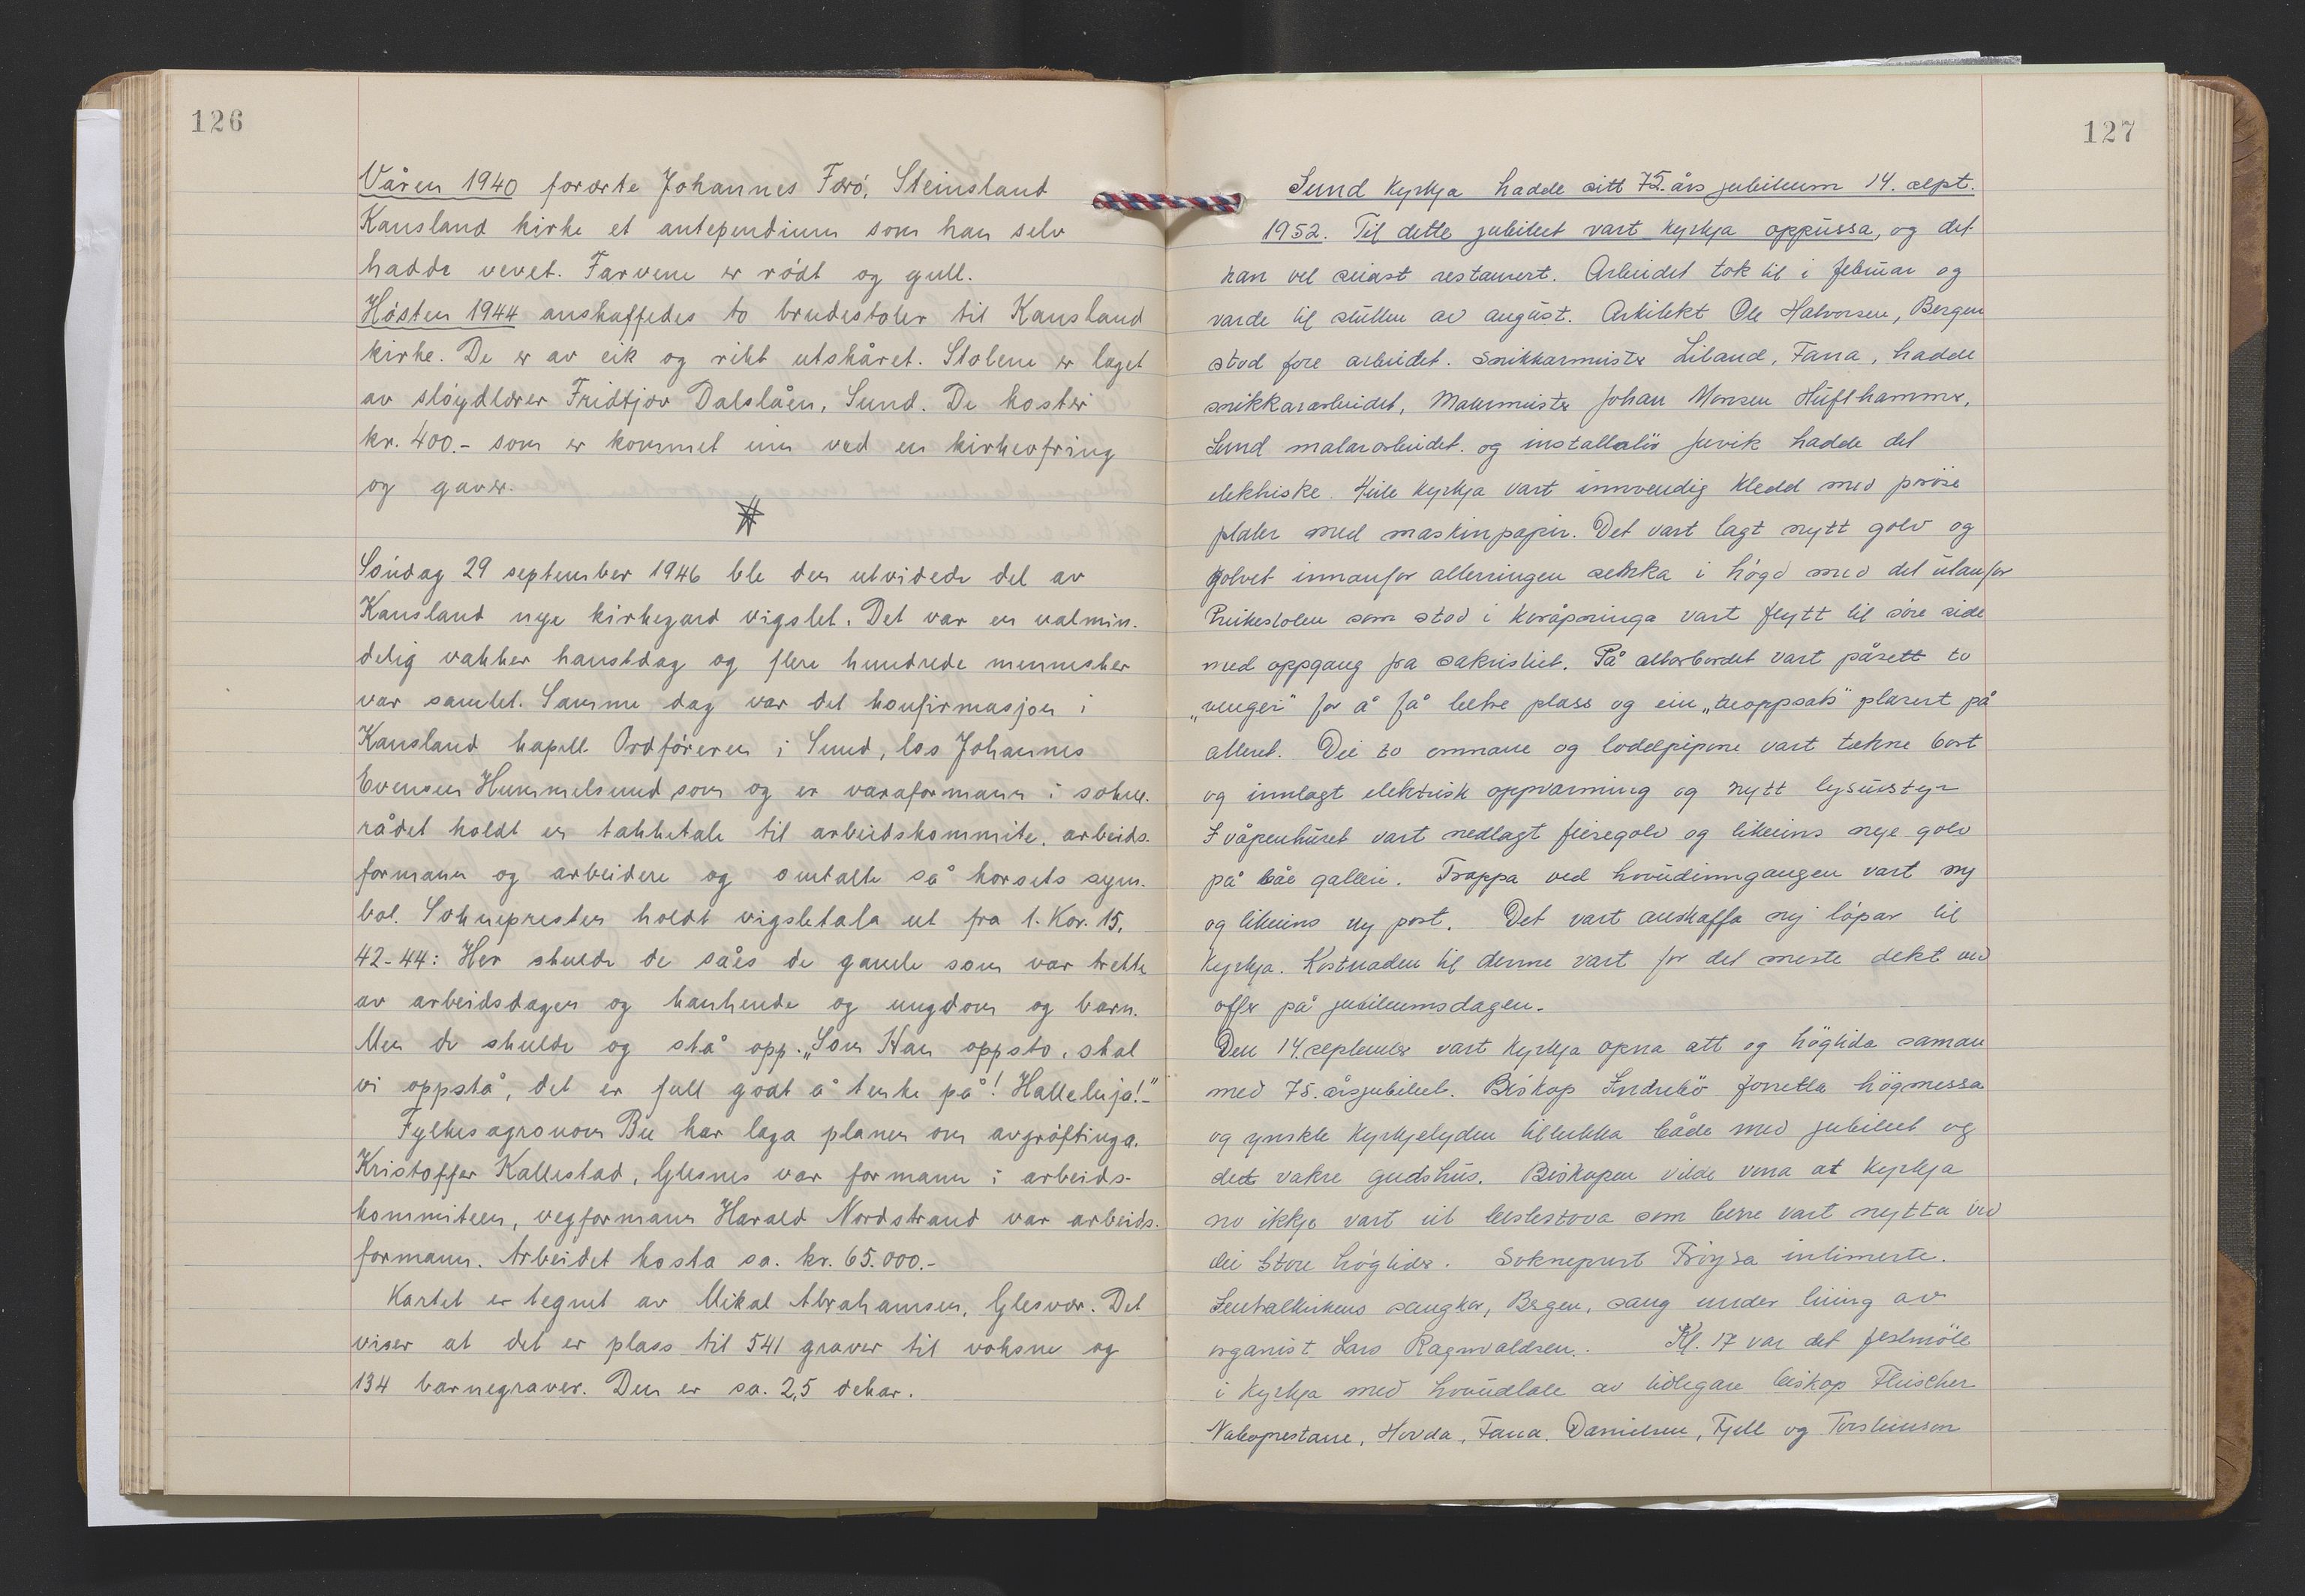 126
Våren 1940 forærte Johannes Færö, Steinsland
Kausland kirke et antependium som han selv
hadde vevet. Farvene er rödt og gull.
Hösten 1944 anskaffedes to brudestoler til Kausland
kirke. De er av eik og rikt utskåret. Stolene er laget
av slöydlærer Fridtjov Dalslåen, Sund. De koster
kr. 400.- som er kommet inn ved en kirkeofring
og gaver.
#
Söndag 29 september 1946 ble den utvidede del av
Kausland nye kirkegard vigslet. Det var en ualmin-
delig vakker haustdag og flere hundrede mennesker
var samlet. Samme dag var det konfirmasjon i
Kausland kapell. Ordföreren i Sund, los Johannes
Evensen Hummelsund som og er varaformann i sokne-
rådet holdt en takketale til arbeidskommite, arbeids-
formann og arbeidere og omtalte så korsets sym-
bol. Sokneprester holdt vigsletala ut fra 1. Kor. 15,
42-44: Her skulde de såes de gamle som var trette
av arbeidsdagen og hanhende og ungdom og barn.
Men de skulde og stå opp. „Som Han oppsto, skal
vi oppstå, det er full godt å tenke på! Halleluja!"-
Fylkesagronom Bu har laga planen om avgröftinga.
Kristoffer Kallestad, Glesnes var formann i arbeids-
kommiteen, vegformann Harald Nordstrand var arbeids-
formann. Arbeidet kosta sa. kr. 65.000.-
Kartet er tegnet av Mikal Abrahamsen, Glesvær. Det
viser at det er plass til 541 graver til voksne og
134 barnegraver. Den er sa. 2,5 dekar.
127
Sund Kyrkja hadde sitt 75. års jubileum 14. sept.
1952. Til dette jubileet vart kyrkja oppussa, og det
kan vel seiast restaurert. Arbeidet tok til i februar og
varde til slutten av august. Arkitekt Ole Halvorsen, Bergen
stod fore arbeidet. Snikkarmeister Liland, Fana, hadde
snikkararbeidet, Malermeister Johan Monsen Huflhammer,
Sund malararbeidet. og installatör Juvik hadde det
elektriske. Heile kyrkja vart innvendig kledd med poröse
plater med maskinpapir. Det vart lagt nytt golv og
golvet innanfor alterringen senka i högd med det utanfor
Preikestolen som stod i koråpninga vart flytt til söre side
med oppgang fra sakristiet. På alterbordet vart påsett to
„venger" for å få betre plass og ein „treoppsats" plasert på
alteret. Dei to omnane og lodelpipone vart tekne bort
og innlagt elektrisk oppvarming og nytt lysutstyr
I våpenhuset vart nedlagt fleisegolv og likeeins nye golv
på båe galleri. Trappa ved hovudinngangen vart ny
og likeeins ny port. Det vart anskaffa ny löpar til
kyrkja. Kostnaden til denne vart for det meste dekt ved
offer på jubileumsdagen.
Den 14. september vart kyrkja opna att og höglida saman
med 75. årsjubileet. Biskop Indrebö forretta högmessa
og ynskte kyrkjelyden tillukka både med jubileet og
det vakre gudshus. Biskopen vilde vona at kyrkja
no ikkje vart eit bestestova som berre vart nytta ved
dei store höglider. Sokneprest Fröysa intimerte.
Sentralkirkens sangkor, Bergen, sang under leiing av
organist Lars Ragnvaldsen. Kl. 17 var det festmöte
i kyrkja med hovudtale av tidlegare biskop Fleischer
Naboprestane, Hovda, Fana. Danielsen, Fjell og Torsteinson